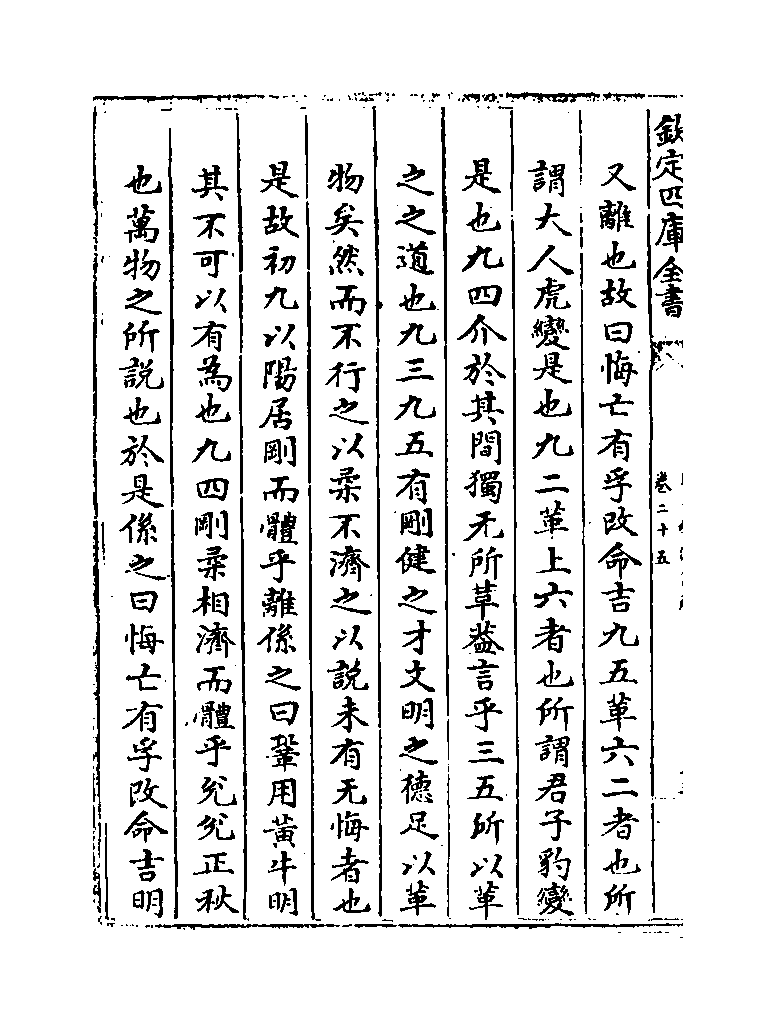 欽定四庫全書
卷二十五
又離也故曰悔亡有孚改命吉九五革六二者也所
謂大人虎變是也九二革上六者也所謂君子豹變
是也九四介於其間獨无所革葢言乎三五所以革
之之道也九三九五有剛健之才文明之德足以革
物矣然而不行之以柔不濟之以說未有无悔者也
是故初九以陽居剛而體乎離係之曰鞏用黄牛明
其不可以有為也九四剛柔相濟而體乎兊兊正秋
也萬物之所說也於是係之曰悔亡有孚改命吉明